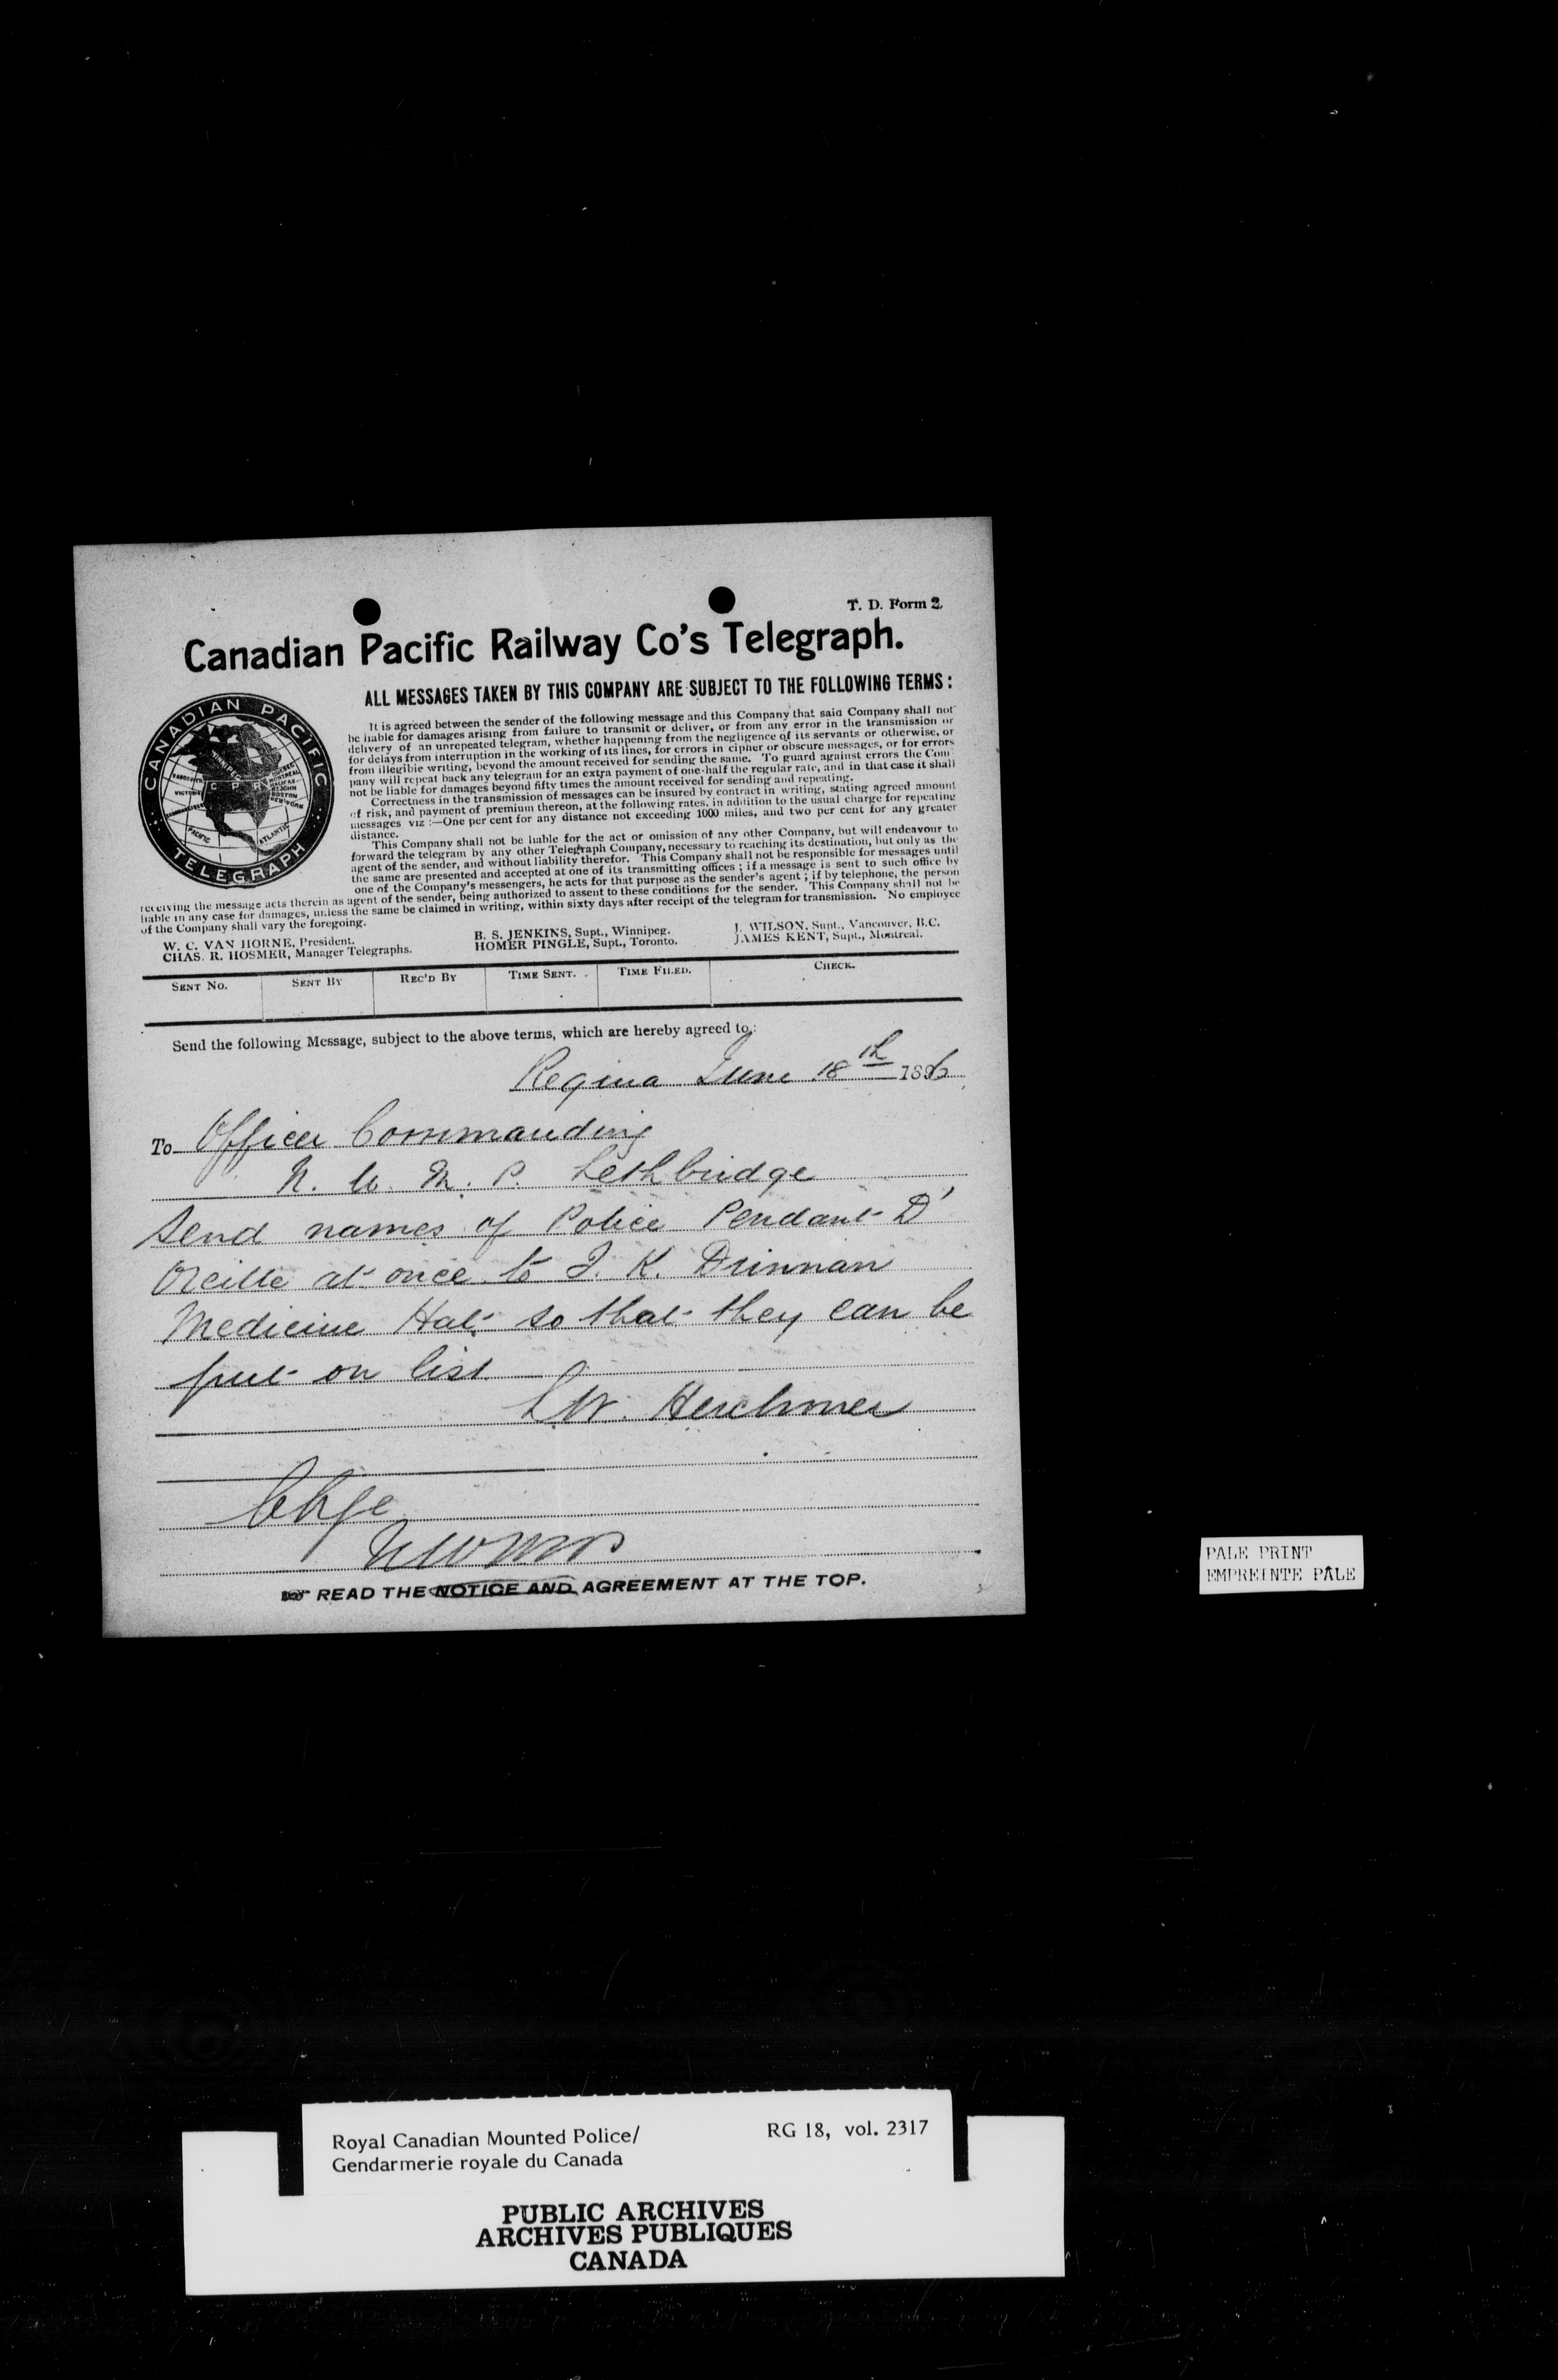 T. D. Form 2.
Canadian Pacific Railway Co's Telegraph.
ALL MESSAGES TAKEN BY THIS COMPANY ARE SUBJECT TO THE FOLLOWING TERMS:
CANADIAN PACIFIC
TELEGRAPH
WINNIPEG
VICTORIA
QUEBEC
MONTREAL
HALIFAX
ST JOHN
BOSTON
NEW YORK
C P R
PACIFIC
ATLANTIC
It is agreed between the sender of the following message and this Company that said Company shall not
be liable for damages arising from failure to transmit or deliver, or from any error in the transmission or
delivery of an unrepeated telegram, whether happening from the negligence of its servants or otherwise, or
for delays from interruption in the working of its lines, for errors in cipher or obscure messages, or for errors
from illegible writing, beyond the amount received for sending the same. To guard against errors the Com-
pany will repeat back any telegram for an extra payment of one-half the regular rate, and in that case it shall
not be liable for damages beyond fifty times the amount received for sending and repeating.
Correctness in the transmission of messages can be insured by contract in writing, stating agreed amount
of risk, and payment of premium thereon, at the following rates, in addition to the usual charge for repeating
messages viz :—One per cent for any distance not exceeding 1000 miles, and two per cent for any greater
distance.
This Company shall not be liable for the act or omission of any other Company, but will endeavour to
forward the telegram by any other Telegraph Company, necessary to reaching its destination, but only as the
agent of the sender, and without liability therefor. This Company shall not be responsible for messages until
the same are presented and accepted at one of its transmitting offices ; if a message is sent to such office by
one of the Company's messengers, he acts for that purpose as the sender's agent ; if by telephone, the person
receiving the message acts therein as agent of the sender, being authorized to assent to these conditions for the sender. This Company shall not be
liable in any case for damages, unless the same be claimed in writing, within sixty days after receipt of the telegram for transmission. No employee
of the Company shall vary the foregoing.
W. C. VAN HORNE, President. B. S. JENKINS, Supt., Winnipeg. J. WILSON, Supt., Vancouver, B.C.
CHAS. R. HOSMER, Manager Telegraphs. HOMER PINGLE, Supt., Toronto. JAMES KENT, Supt., Montreal.
SENT NO. SENT BY REC'D BY TIME SENT. TIME FILED. CHECK.
Send the following Message, subject to the above terms, which are hereby agreed to:
Regina June 18th 1896
To Officer Commanding
N. W. M. P. Lethbridge
Send names of Police Pendant D'
Oreille at once to J. K. Drinnan
Medicine Hat so that they can be
put on list
L W. Herchmer
Chge
NWMP
READ THE NOTICE AND AGREEMENT AT THE TOP.
PALE PRINT
EMPREINTE PALE
Royal Canadian Mounted Police/ RG 18, vol. 2317
Gendarmerie royale du Canada
PUBLIC ARCHIVES
ARCHIVES PUBLIQUES
CANADA